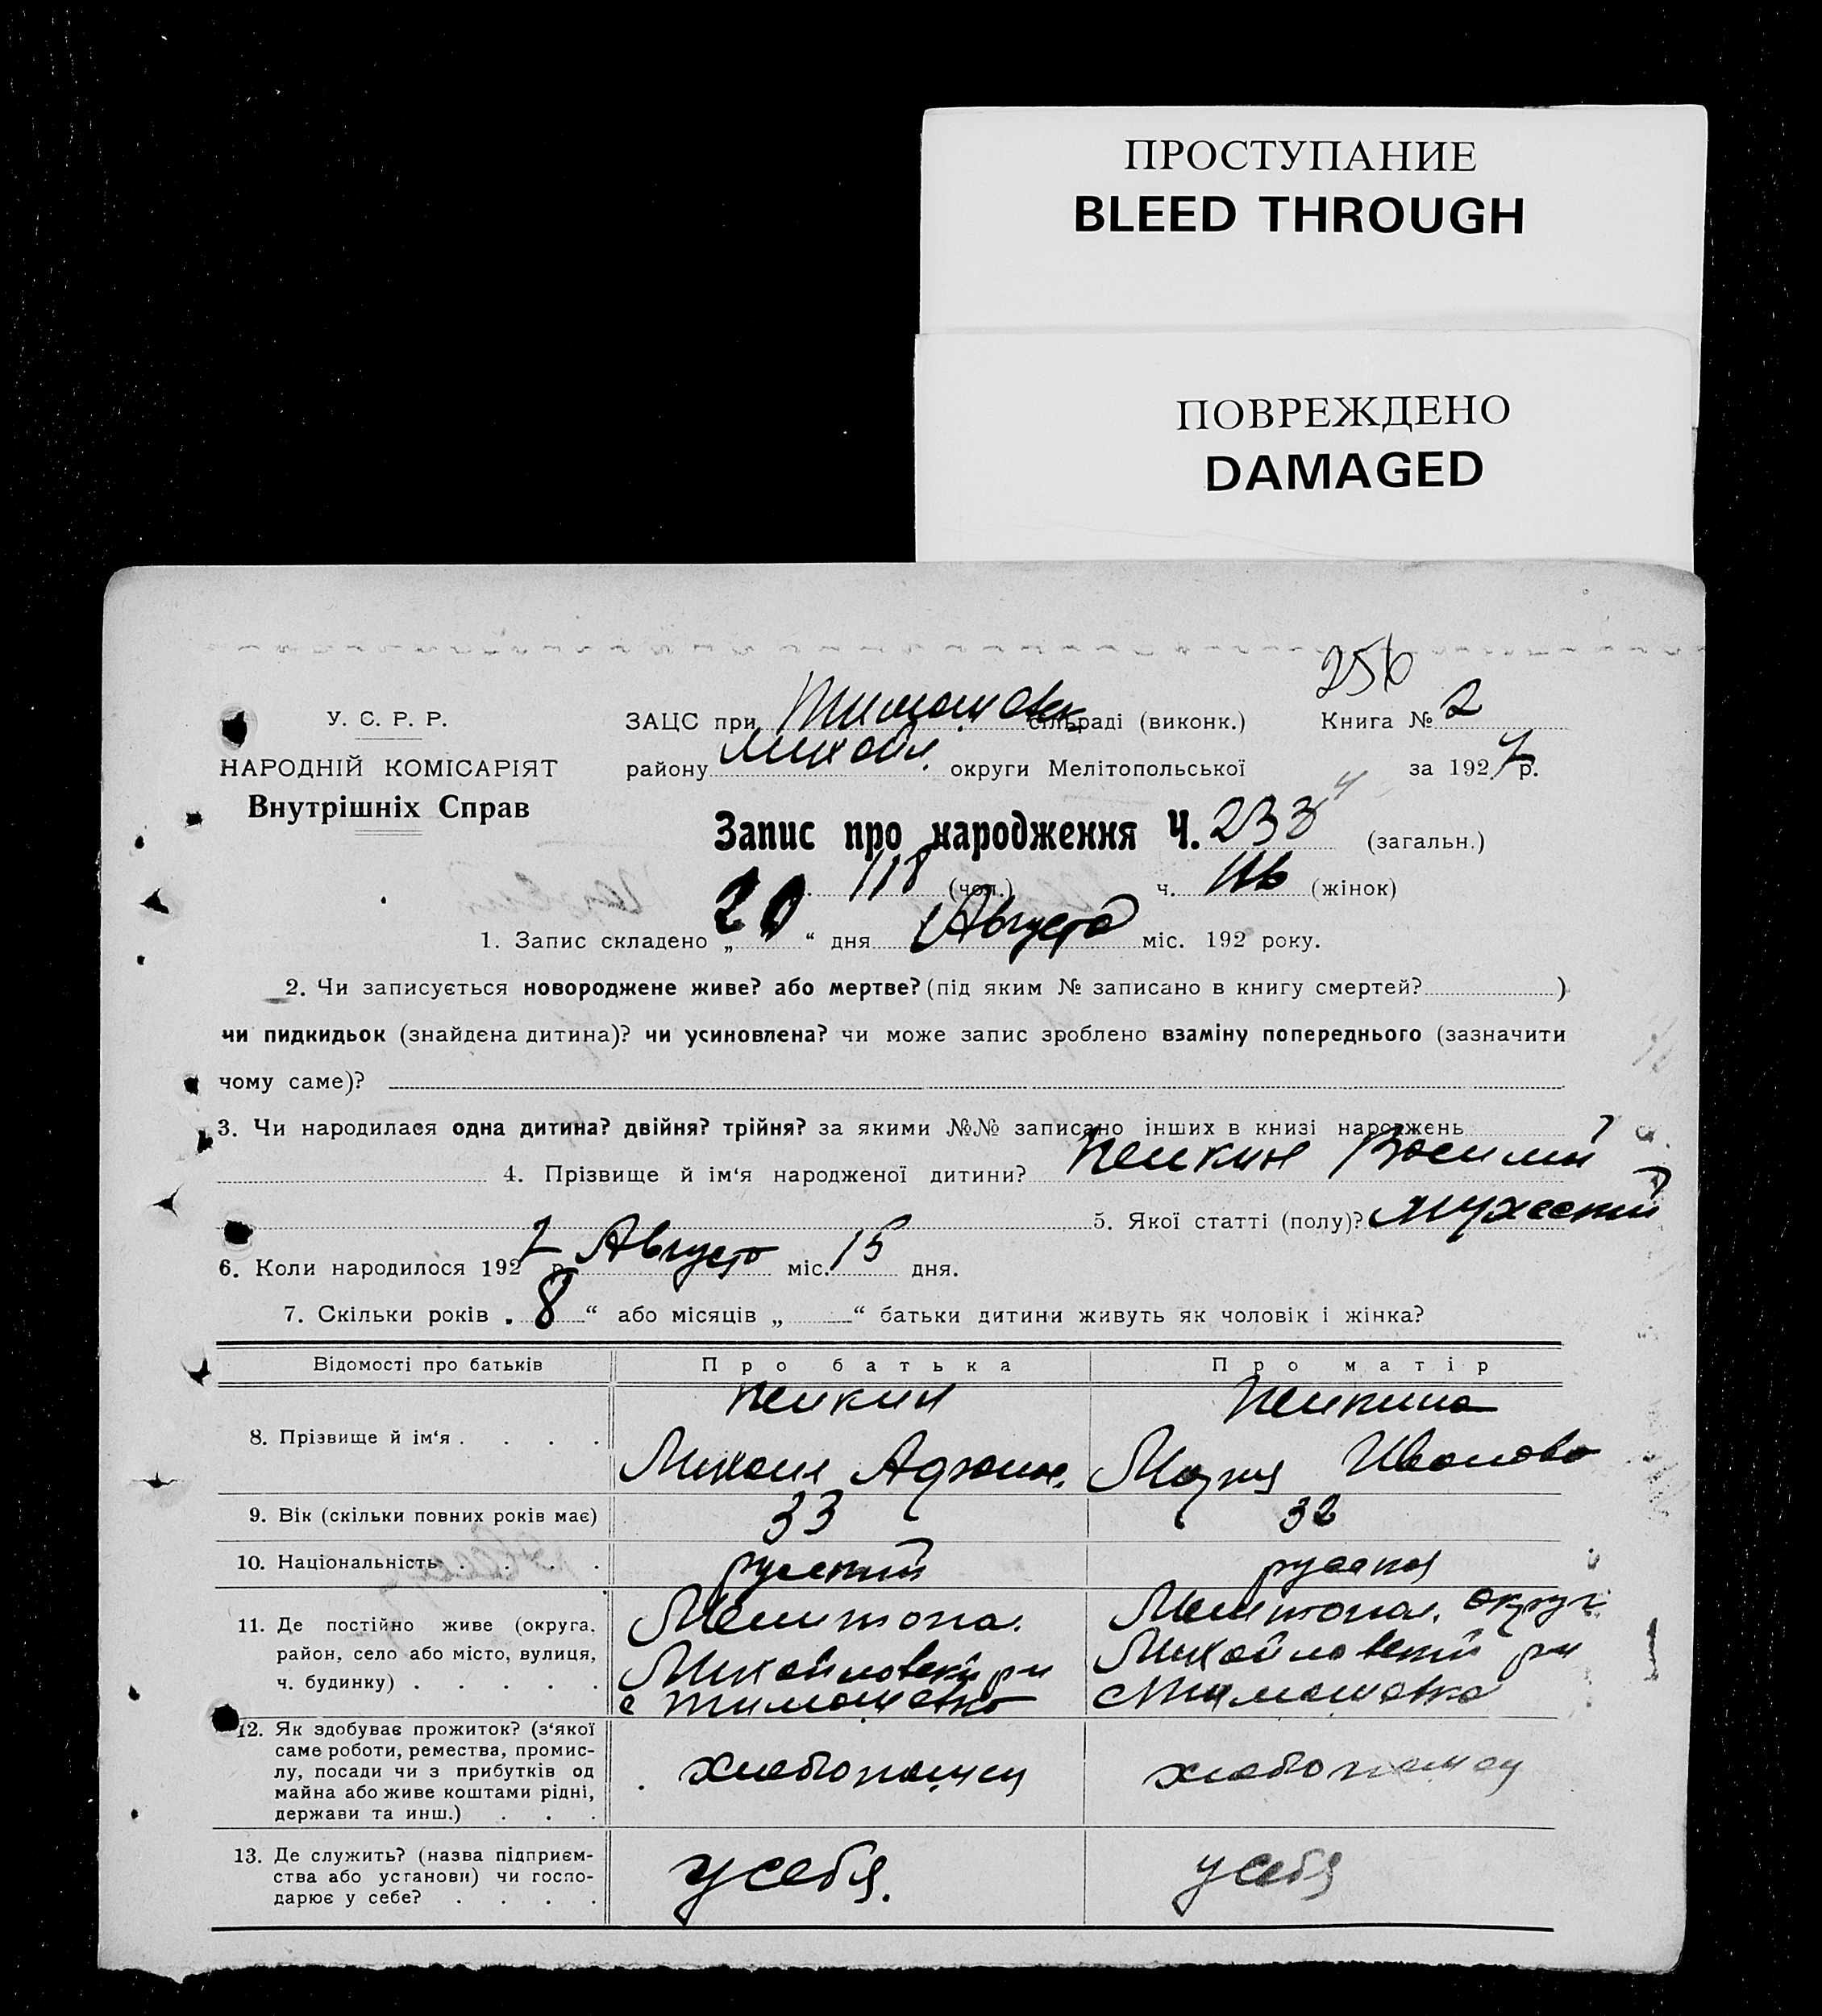 ПРОСТУПАНИЕ
BLEED THROUGH
ПОВРЕЖДЕНО
DAMAGED
256
У. С. Р. Р.
НАРОДНІЙ КОМІСАРІЯТ
Внутрішніх Справ
ЗАЦС при Тимошевск сільраді (виконк.) Книга № 2
району Михайл. округи Мелітопольської за 1927 р.
Запис про народження Ч. 233 (загальн.)
118 (чол.) ч. 116 (жінок)
1. Запис складено „ 20 “ дня Августа міс. 192 року.
2. Чи записується новороджене живе? або мертве? (під яким № записано в книгу смертей? )
чи пидкидьок (знайдена дитина)? чи усиновлена? чи може запис зроблено взаміну попереднього (зазначити
чому саме)?
3. Чи народилася одна дитина? двійня? трійня? за якими №№ записано інших в книзі народжень
4. Прізвище й ім‘я народженої дитини? Василий
5. Якої статті (полу)? мужский
6. Коли народилося 1927 р. Августа міс. 15 дня.
7. Скільки років „ 8 “ або місяців „ “ батьки дитини живуть як чоловік і жінка?
Відомості про батьків Про батька Про матір
8. Прізвище й ім‘я . . . .
Михаил
Мария Иванова
9. Вік (скільки повних років має) 33 32
10. Національність . . . . русский русская
11. Де постійно живе (округа, район, село або місто, вулиця, ч. будинку) . . . . .
Мелитопол.
Михайловски рн
с Тимошевка
Мелитопол. округ
Михайловский рн
с Тимошевка
12. Як здобуває прожиток? (з‘якої
саме роботи, ремества, промис-
лу, посади чи з прибутків од
майна або живе коштами рідні,
держави та инш.) . . .
хлебопашец хлебопашец
13. Де служить? (назва підприєм-
ства або установи) чи госпо-
дарює у себе? . . . .
у себя. у себя